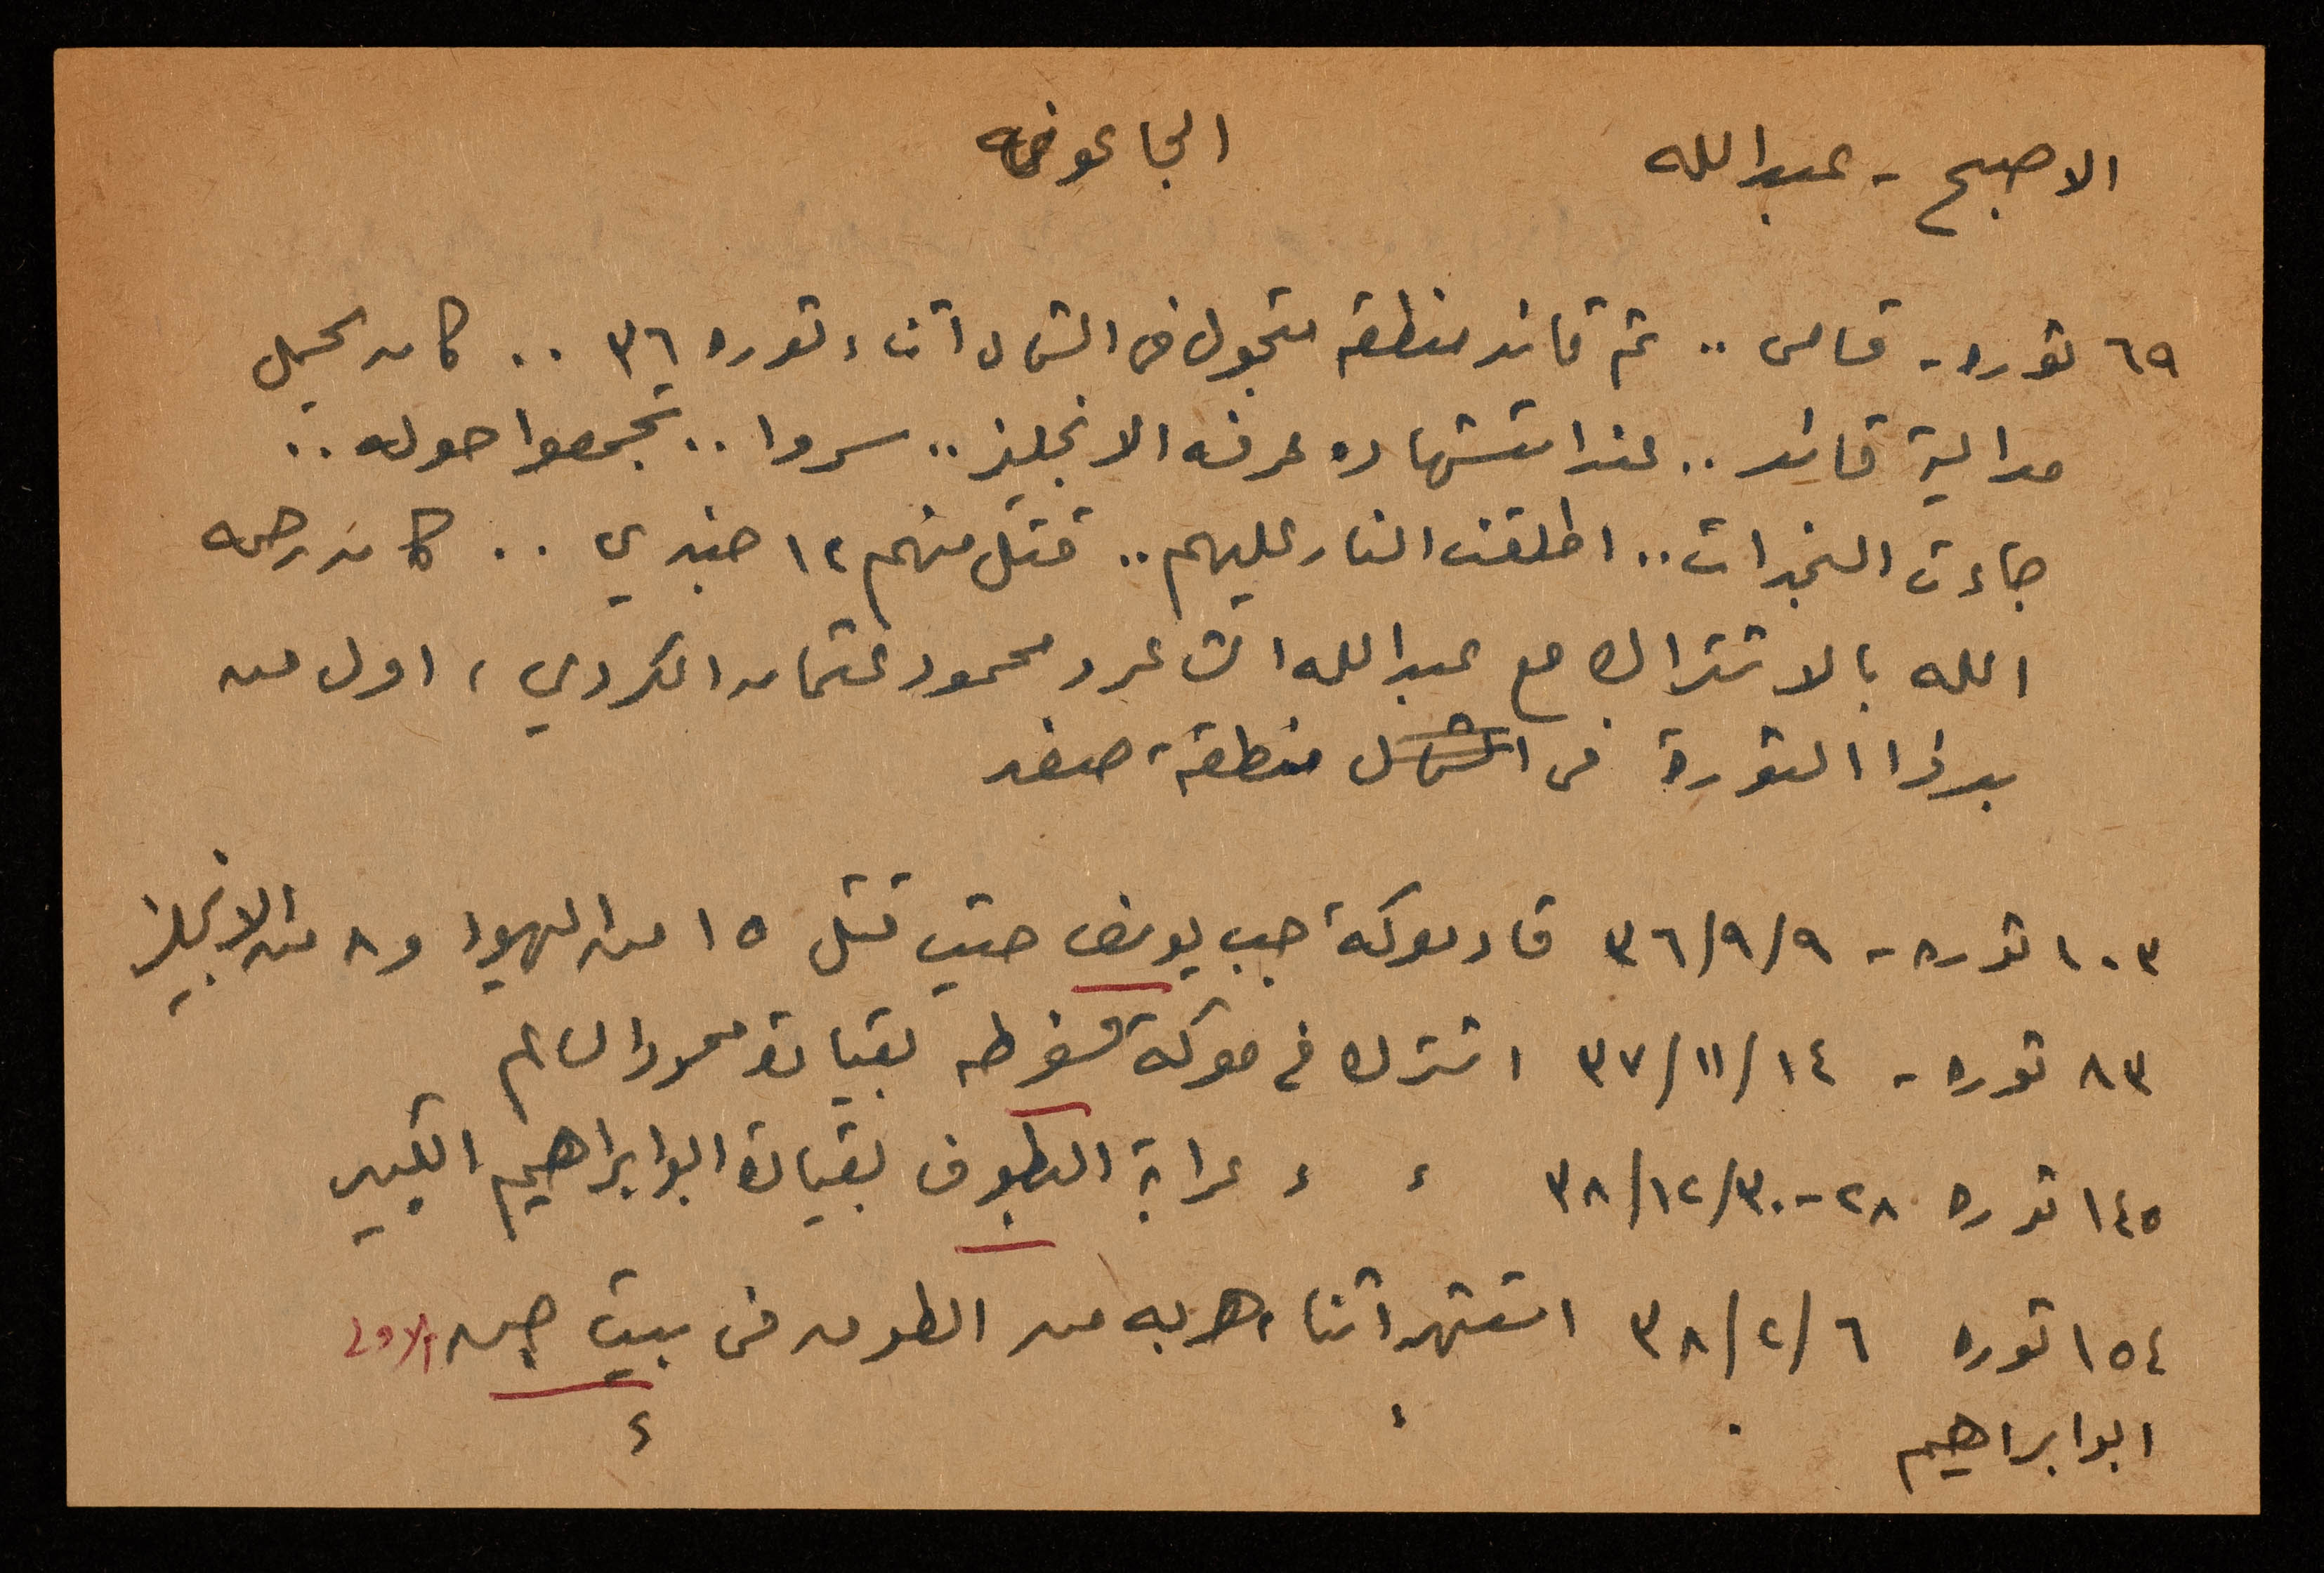 الاصبح - عبدالله
الجاعونه
٦٩ ثوره - قسامى .. ثم قائد منطقه متجول في الشمال اثناء ثوره ٣٦ .. كان يحمل
مدالية قائد .. عند استشهاده عرفه الانجليز .. سروا .. تجمعوا حوله ..
جاءت النجدات .. اطلقت النار عليهم .. قتل منهم ١٢ جندي .. كان رحمه
الله بالاشتراك مع عبدالله الشاعر و محمود عثمان الكردي ، اول من
بدأوا الثورة في الشمال منطقة صفد
١٠٣ ثوره - ٣٦/٩/٩ قاد معركة جب يوسف حيث قتل ١٥ من اليهود و ٨ من الانجليز
٨٣ ثوره - ٣٧/١١/١٤ اشترك في معركة سقوطه بقيادة محمود السالم
١٤٥ ثوره ٢٨-٣٨/١٢/٣٠ ء ء عرابة البطوف بقيادة ابو ابراهيم الكبير
١٥٤ ثوره ٣٨/٢/٦ استشهد اثناء هربه من الطوق في بيت جن
ابو ابراهيم